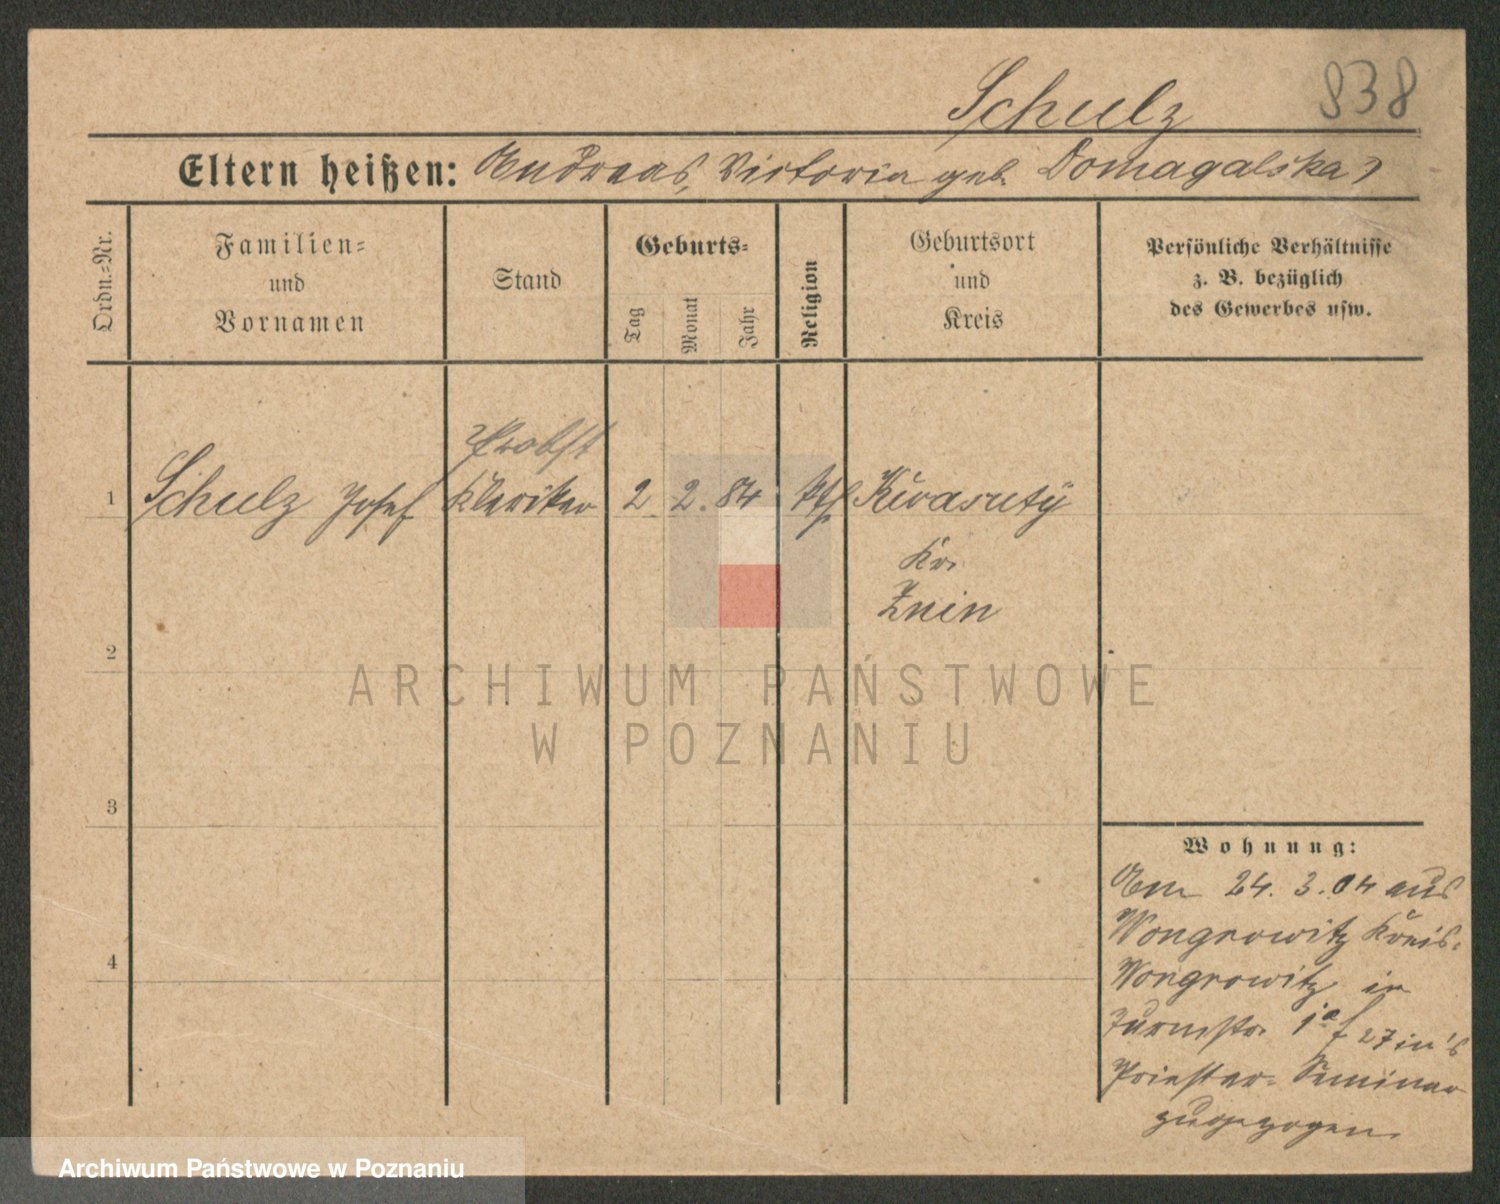 Schulz 838
Eltern heißen: Andreas, Victoria geb. Domagalska
Ordn.-Nr.
Familien-
und
Vornamen
Stand
Geburts-
Tag
Monat
Jahr
Religion
Geburtsort
und
Kreis
Persönliche Verhältnisse
z. B. bezüglich
des Gewerbes usw.
Probst
1 Schulz Josef Kleriker 2 2. 84 kth
Kr.
Znin
2
3
4
Wohnung:
Am 24. 3. 04 aus
Wongrowitz Kreis-
Wongrowitz in
Turmstr. 27 in's
Priester-Seminar
zugezogen.
ARCHIWUM PAŃSTWOWE
W POZNANIU
Archiwum Państwowe w Poznaniu